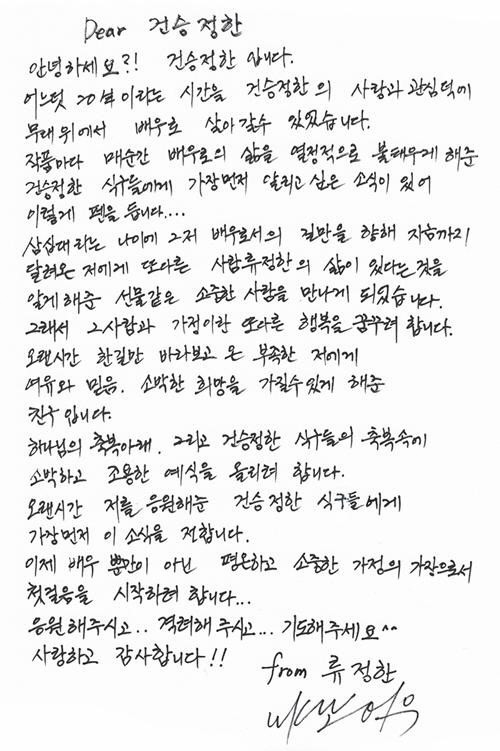 Dear 건승정한
안녕하세요?! 건승정한 입니다.
어느덧 20년이라는 시간을 건승정한의 사랑과 관심덕에
무대위에서 배우로 살아갈수 있었습니다.
작품마다 매순간 배우로의 삶을 열정적으로 불태우게 해준
건승정한 식구들에게 가장먼저 알리고 싶은 소식이 있어
이렇게 펜을 듭니다....
삼십대라는 나이에 그저 배우로서의 길만을 향해 지금까지
달려온 저에게 또다른 사람 류정한의 삶이 있다는 것을
알게해준 선물같은 소중한 사람을 만나게 되었습니다.
그래서 그사람과 가정이란 또다른 행복을 꿈꾸려 합니다.
오랜시간 한길만 바라보고 온 부족한 저에게
여유와 믿음. 소박한 희망을 가질수있게 해준
친구입니다.
하나님의 축복아래. 그리고 건승정한 식구들의 축복속에
소박하고 조용한 예식을 올리려 합니다.
오랜시간 저를 응원해준 건승정한 식구들에게
가장먼저 이 소식을 전합니다.
이제 배우 뿐만이 아닌 평온하고 소중한 가정의 가장으로서
첫걸음을 시작하려 합니다...
응원해주시고.. 격려해주시고... 기도해주세요^^
사랑하고 감사합니다!!
from 류정한